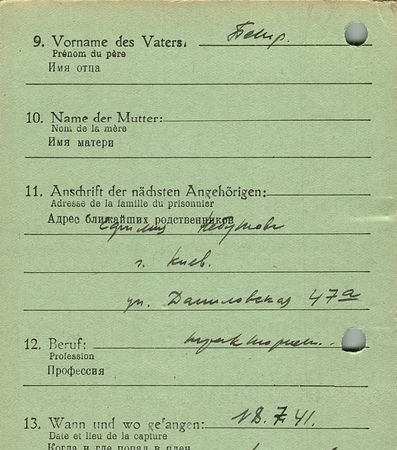 9. Vorname des Vaters: Петр.
Prénom du père
Имя отца
10. Name der Mutter:
Nom de la mère
Имя матери
11. Anschrift der nächsten Angehörigen:
Adresse de la famille du prisonnier
Адрес ближайших родственников
г. Киев.
ул. Даниловская 47а
12. Beruf: тракторист.
Profession
Профессия
13. Wann und wo gefangen: 18.7.41.
Date et lieu de la capture
Когда и где попал в плен